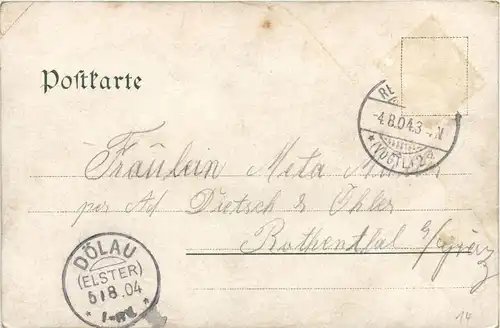 Postkarte
4.8.04.3-4N
(VOGTL.)2
Fräulein Meta
per Ad Dietsch & Ihler
Rothenthal b/Greiz
DÖLAU
(ELSTER)
6/8.04
14